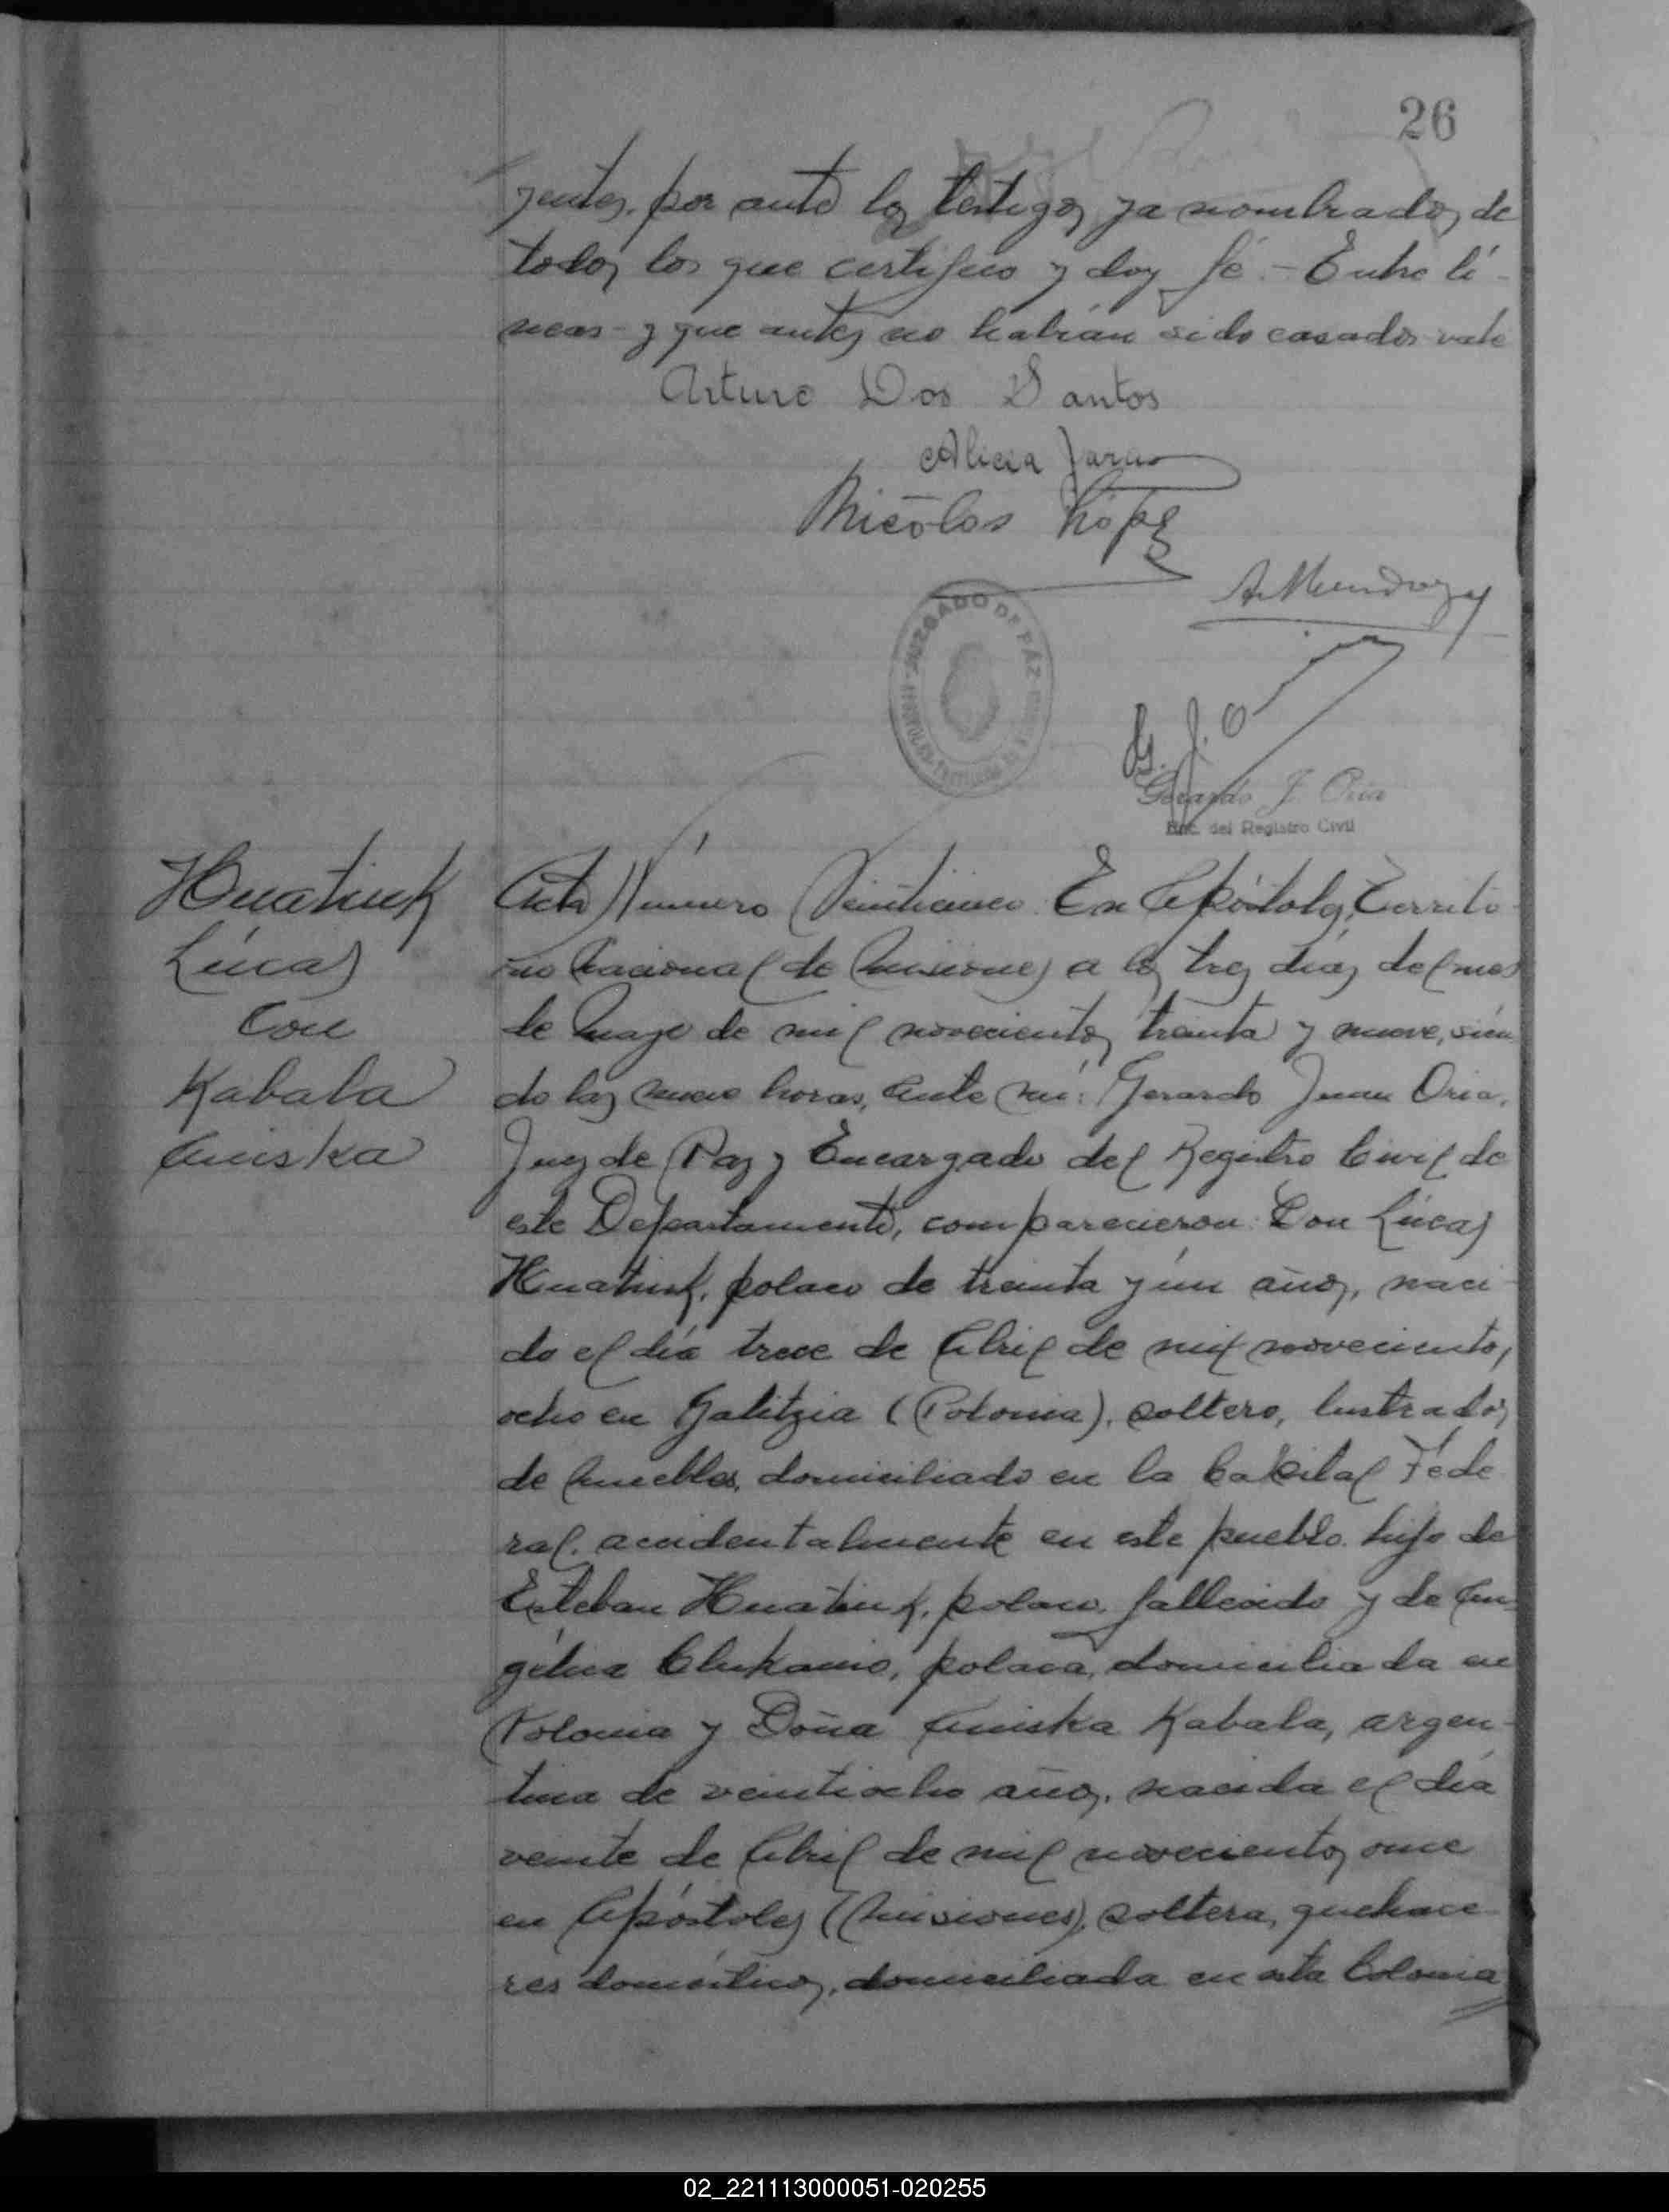 26
yentes, por ante los testigos ya nombrados, de
todos los que certifico y doy fé.- Entre lí-
neas- y que antes no habían sido casados- vale
Arturo Dos Santos
Alicia
Nicolas Lópe
A. Mendoza
JUZGADO DE PAZ
G. J. O
Gerardo J. Oria
Enc. del Registro Civil
Hnatiuk
Lúcas
Con
Kabala
Aniska
Acta Número Veinticinco. En Apóstoles, Territo-
rio Nacional de Misiones, a los tres días del mes
de Mayo de mil novecientos treinta y nueve, sien
do las nueve horas, Ante mí: Gerardo Juan Oria,
Juez de Paz y Encargado del Registro Civil de
este Departamento, comparecieron: Don Lúcas
Hnatiuk, polaco de treinta y ún años, naci-
do el día trece de Abril de mil novecientos
ocho en Galitzia (Polonia), soltero, lustrador
de Muebles, domiciliado en la Capital Fede-
ral, accidentalmente en este pueblo, hijo de
Esteban Hnatiuk, polaco, fallecido y de An-
gélica polaca, domiciliada en
Polonia y Doña Aniska Kabala, argen-
tina de veintiocho años, nacida el día
veinte de Abril de mil novecientos once
en Apóstoles (Misiones), soltera, quehace-
res domésticos, domiciliada en esta Colonia
02_221113000051-020255